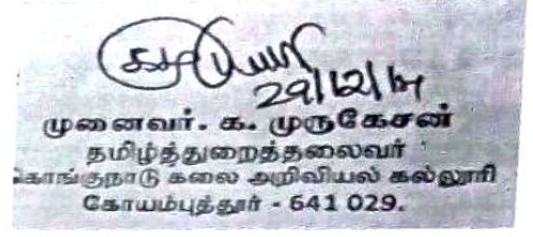 29/12/17
முனைவர். க. முருகேசன்
தமிழ்த்துறைத்தலைவர்
கொங்குநாடு கலை அறிவியல் கல்லூரி
கோயம்புத்தூர் - 641 029.